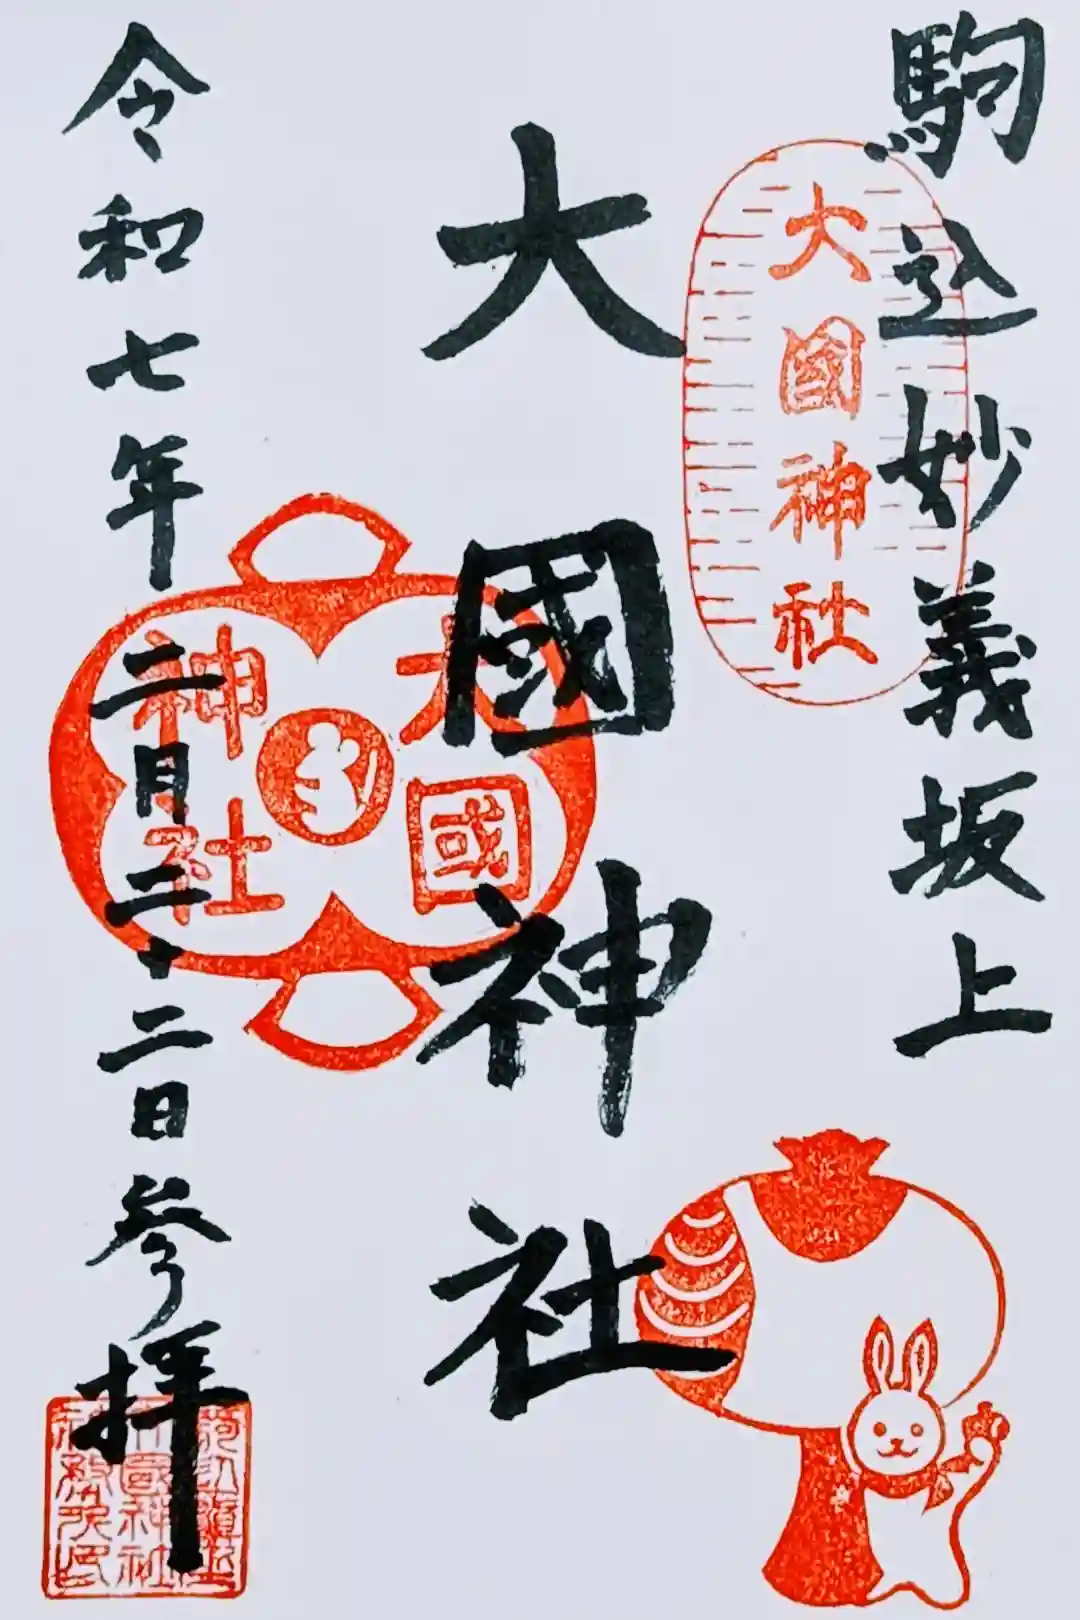 駒込妙義坂上
大國神社
大國神社
大國
神社
令和七年二月二十二日参拝